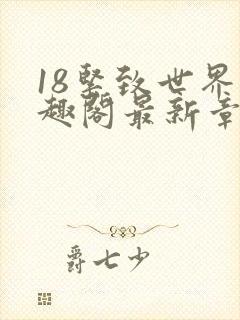 18坚致世界
趣阁最新章
爵七少